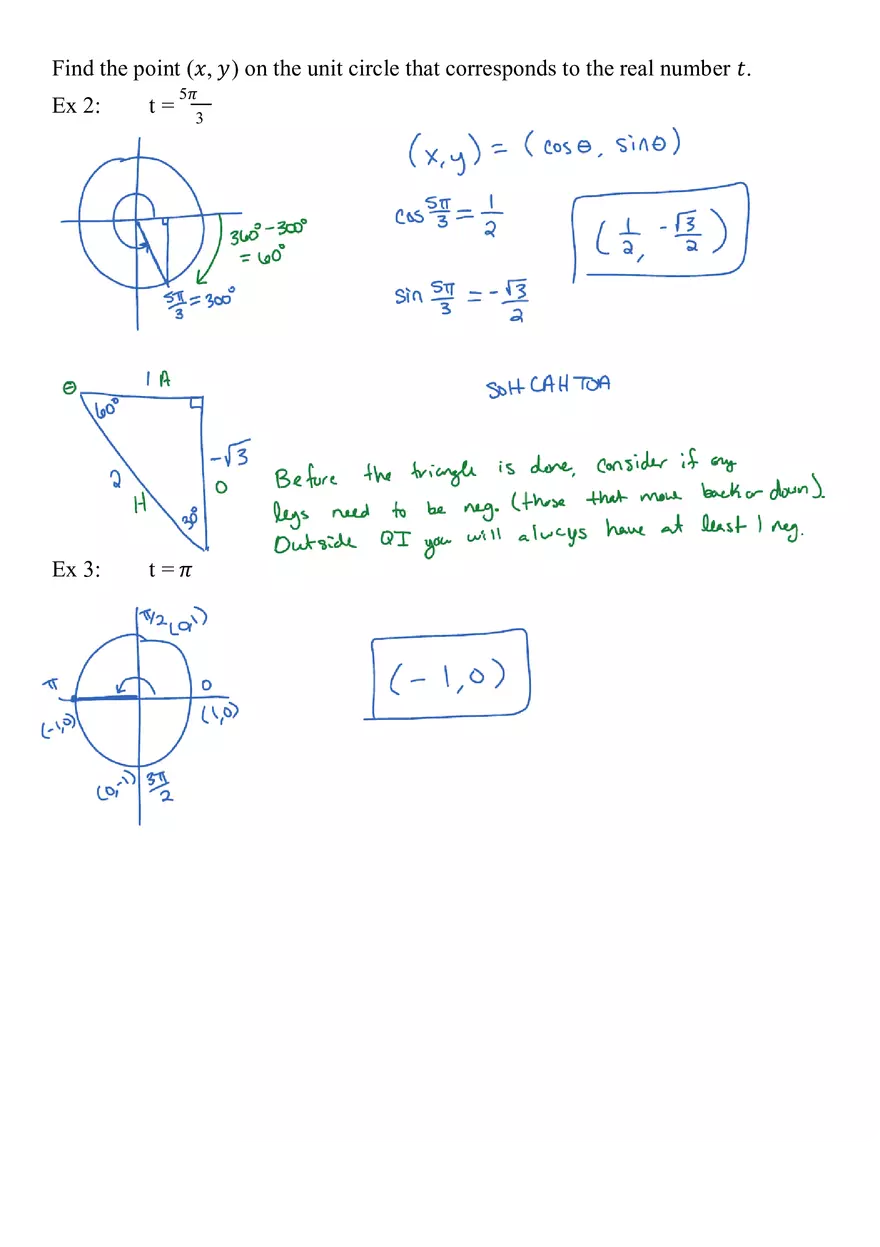 Find the point (x, y) on the unit circle that corresponds to the real number t.
Ex 2: t = 5π/3
(x,y) = (cosθ, sinθ)
cos 5π/3 = 1/2
(1/2, -√3/2)
360° - 300°
= 60°
5π/3 = 300°
sin 5π/3 = -√3/2
θ
1 A
60°
SOH CAH TOA
2
H
-√3
O
30°
Before the triangle is done, consider if any
legs need to be neg. (those that move back or down).
Outside QI you will always have at least 1 neg.
Ex 3: t = π
π/2 (0,1)
π
0
(-1,0)
(1,0)
(0,-1) 3π/2
(-1,0)